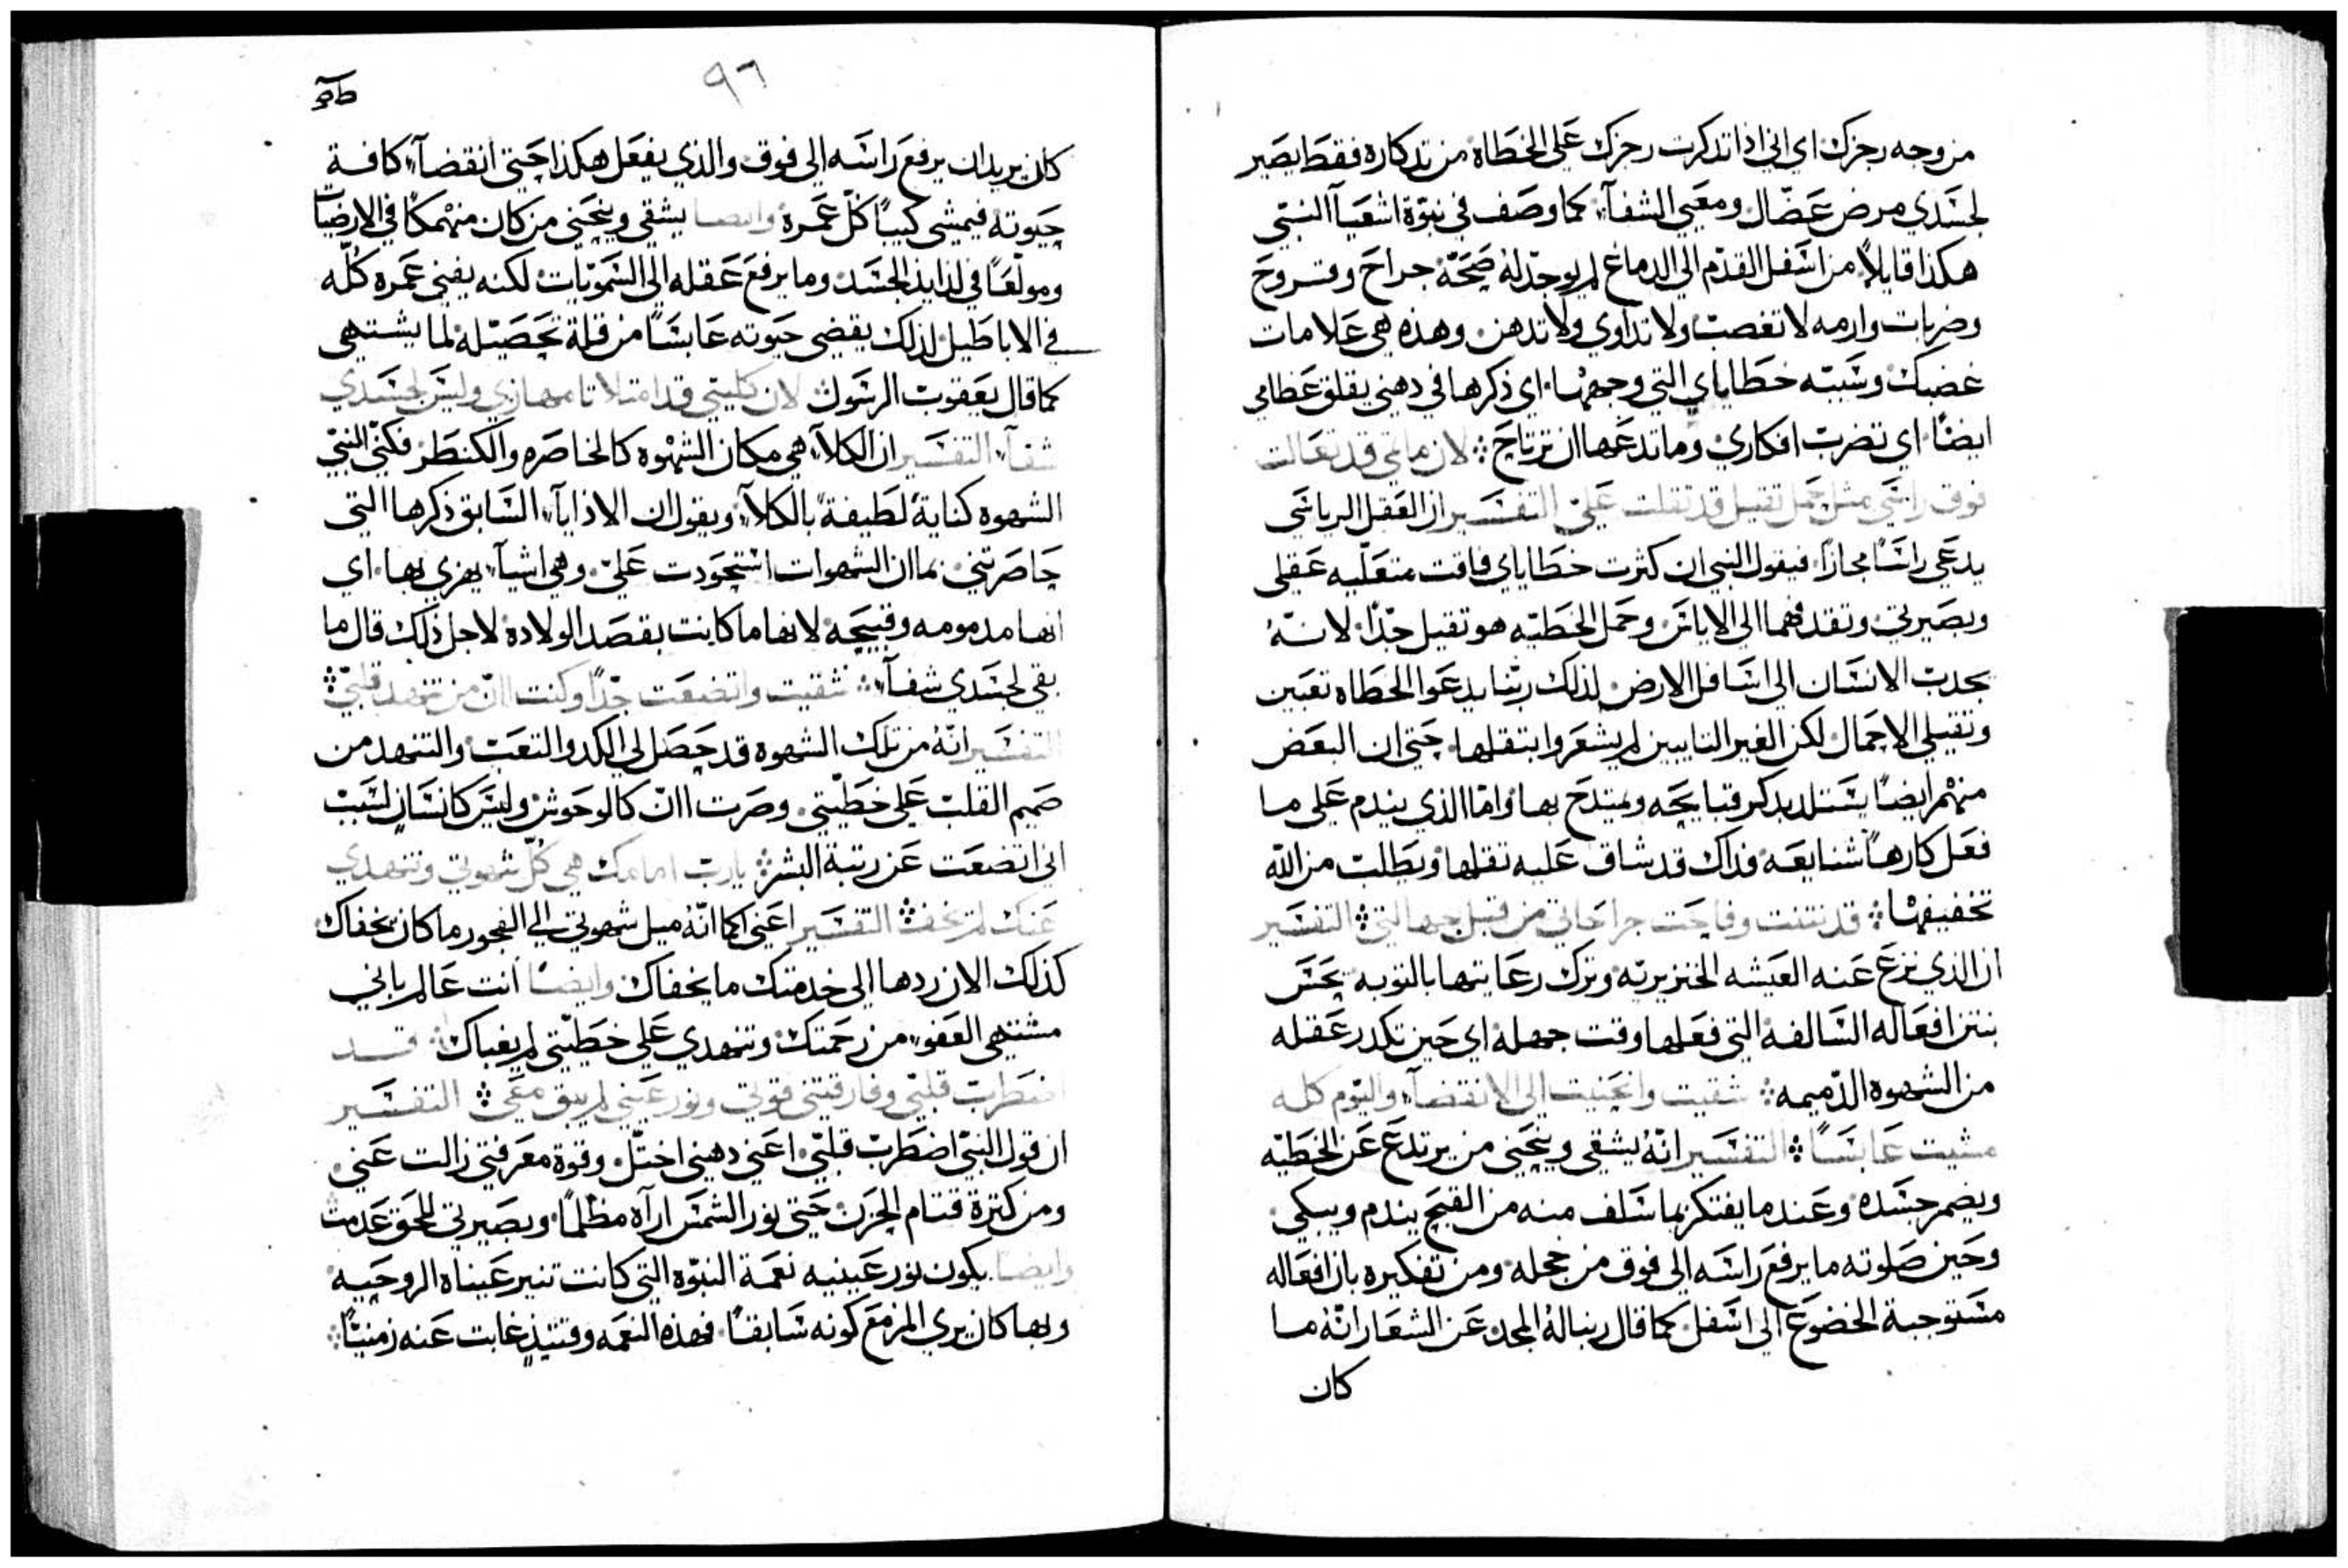 من وجه رجزك اي اني اذا تدكرت رجزك على الخطاه من تدكاره فقط يصير
لجسدي مرض عضال ومعيي الشفآء كما وصف في نبوة اشعيآ النبي
هكذا قايلاً من اسفل القدم الي الدماغ لم يوجد له صحة جراح وقروح
وضربات وارمه لا تعصب ولا تداوي ولا تدهن وهذه هي علامات
غضبك وسببه خطاياي التي وجهها اي ذكرها في دهني يقلق عظامي
ايضاً اي تضرب افكاري وما تدعها ان ترتاح لان ماثمي قد تعالت
فوق راسي مثل حمل تقيل قد تقلت عليّ التفسير ان العقل الرياسي
يدعي راساً مجازاً فيقول النبي ان كثرت خطاياي فاقت متعليه عقلي
وبصيرتي وتقدفهما الي الاياس وحمل الخطيه هو تقيل جداً لانهُ
يجدب الانسان الي اسافل الارض لذلك ربنا يدعوا الخطاه تعبين
وتقيلي الاحمال لكن الغير التايبين لم يشعروا بتقلها حتي ان البعض
منهم ايضاً يستلد بدكر قبايحه ويمتدح بها وامّا الذي يندم علي ما
فعل كارهاً شنايعه فذاك قد شاق عليه تقلها ويطلب من الله
تخفيفها قد نتنت وفاحت جراحاتي من قبل جهالتي التفسير
ان الذي نزع عنه العيشه الخنزيريه وترك رعايتها بالتوبه يحس
بنتن افعاله السالفه التي فعلها وقت جهله اي حين تكدر عقله
من الشهوه الذميمه شقيت وانحنيت الي الانقضآء واليوم كله
مشيت عابساً التفسير انهُ يشقي وينحني من يرتدع عن الخطيه
ويضمر جسده وعندما يفتكر بما سلف منه من القبح يندم ويبكي
وحين صلوته ما يرفع راسه الي فوق من خجله ومن تفكيره بان افعاله
مستوجبة الخضوع الي اسفل كما قال ربنا له المجد عن العشار انهُ ما
كان
٩٦
كان يريد ان يرفع راسه الي فوق والذي يفعل هكذا حتي انقضآء كافة
حيوته فيمشي كيباً كلّ عمره وايضاً يشقي وينحني من كان منهمكاً في الارضيات
ومولعاً في لذايذ الجسد وما يرفع عقله الي السمويات لكنه يفني عمره كُلّه
في الاباطيل لذلك يقضي حيوته عابساً من قلة تحصيله لما يشتهي
كما قال يعقوب الرسول لان كليتي قد امتلاتا مهازي وليس لجسدي
شفآء التفسير ان الكلاء هي مكان الشهوه كالخاصره والكنطر فكني النبي
الشهوه كناية لطيفة بالكلاء ويقول ان الاذايآء السابق ذكرها التي
حاصرتني بما ان الشهوات استحودت عليّ وهي اشيآء يهزي بها اي
انها مدمومه وقبيحه لانها ما كانت بقصد الولاده لاجل ذلك قال ما
بقي لجسدي شفآء شقيت واتضعت جداً وكنت اانّ من تنهد قلبي
التفسير انهُ من تلك الشهوه قد حصل لي الكد والتعب والتنهد من
صميم القلب علي خطيتي وصرت اانّ كالوحوش وليس كانسان لسبب
اني اتضعت عن رتبة البشر يارب امامك هي كلّ شهوتي وتنهدي
عنك لم يخف التفسير اعني كما انهُ ميل شهوتي الي الفجور ما كان يخفاك
كذلك الان ردها الي خدمتك ما يخفاك وايضاً انت عالم باني
مشتهي العفو من رحمتك وتنهدي علي خطيتي لم يغباك قد
اضطرب قلبي وفارقتني قوتي ونور عيني لم يبق معي التفسير
ان قول النبي اضطرب قلبي اعني دهني اختل وقوة معرفتي زالت عني
ومن كثرة قتام الحزن حتي نور الشمس اراه مظلماً وبصيرتي للحق عدمت
وايضاً يكون نور عينيه نعمة النبوه التي كانت تنير عيناه الروحيه
وبها كان يري المزمع كونه سابقاً فهذه النعمه وقتيذ غابت عنه زمنياً